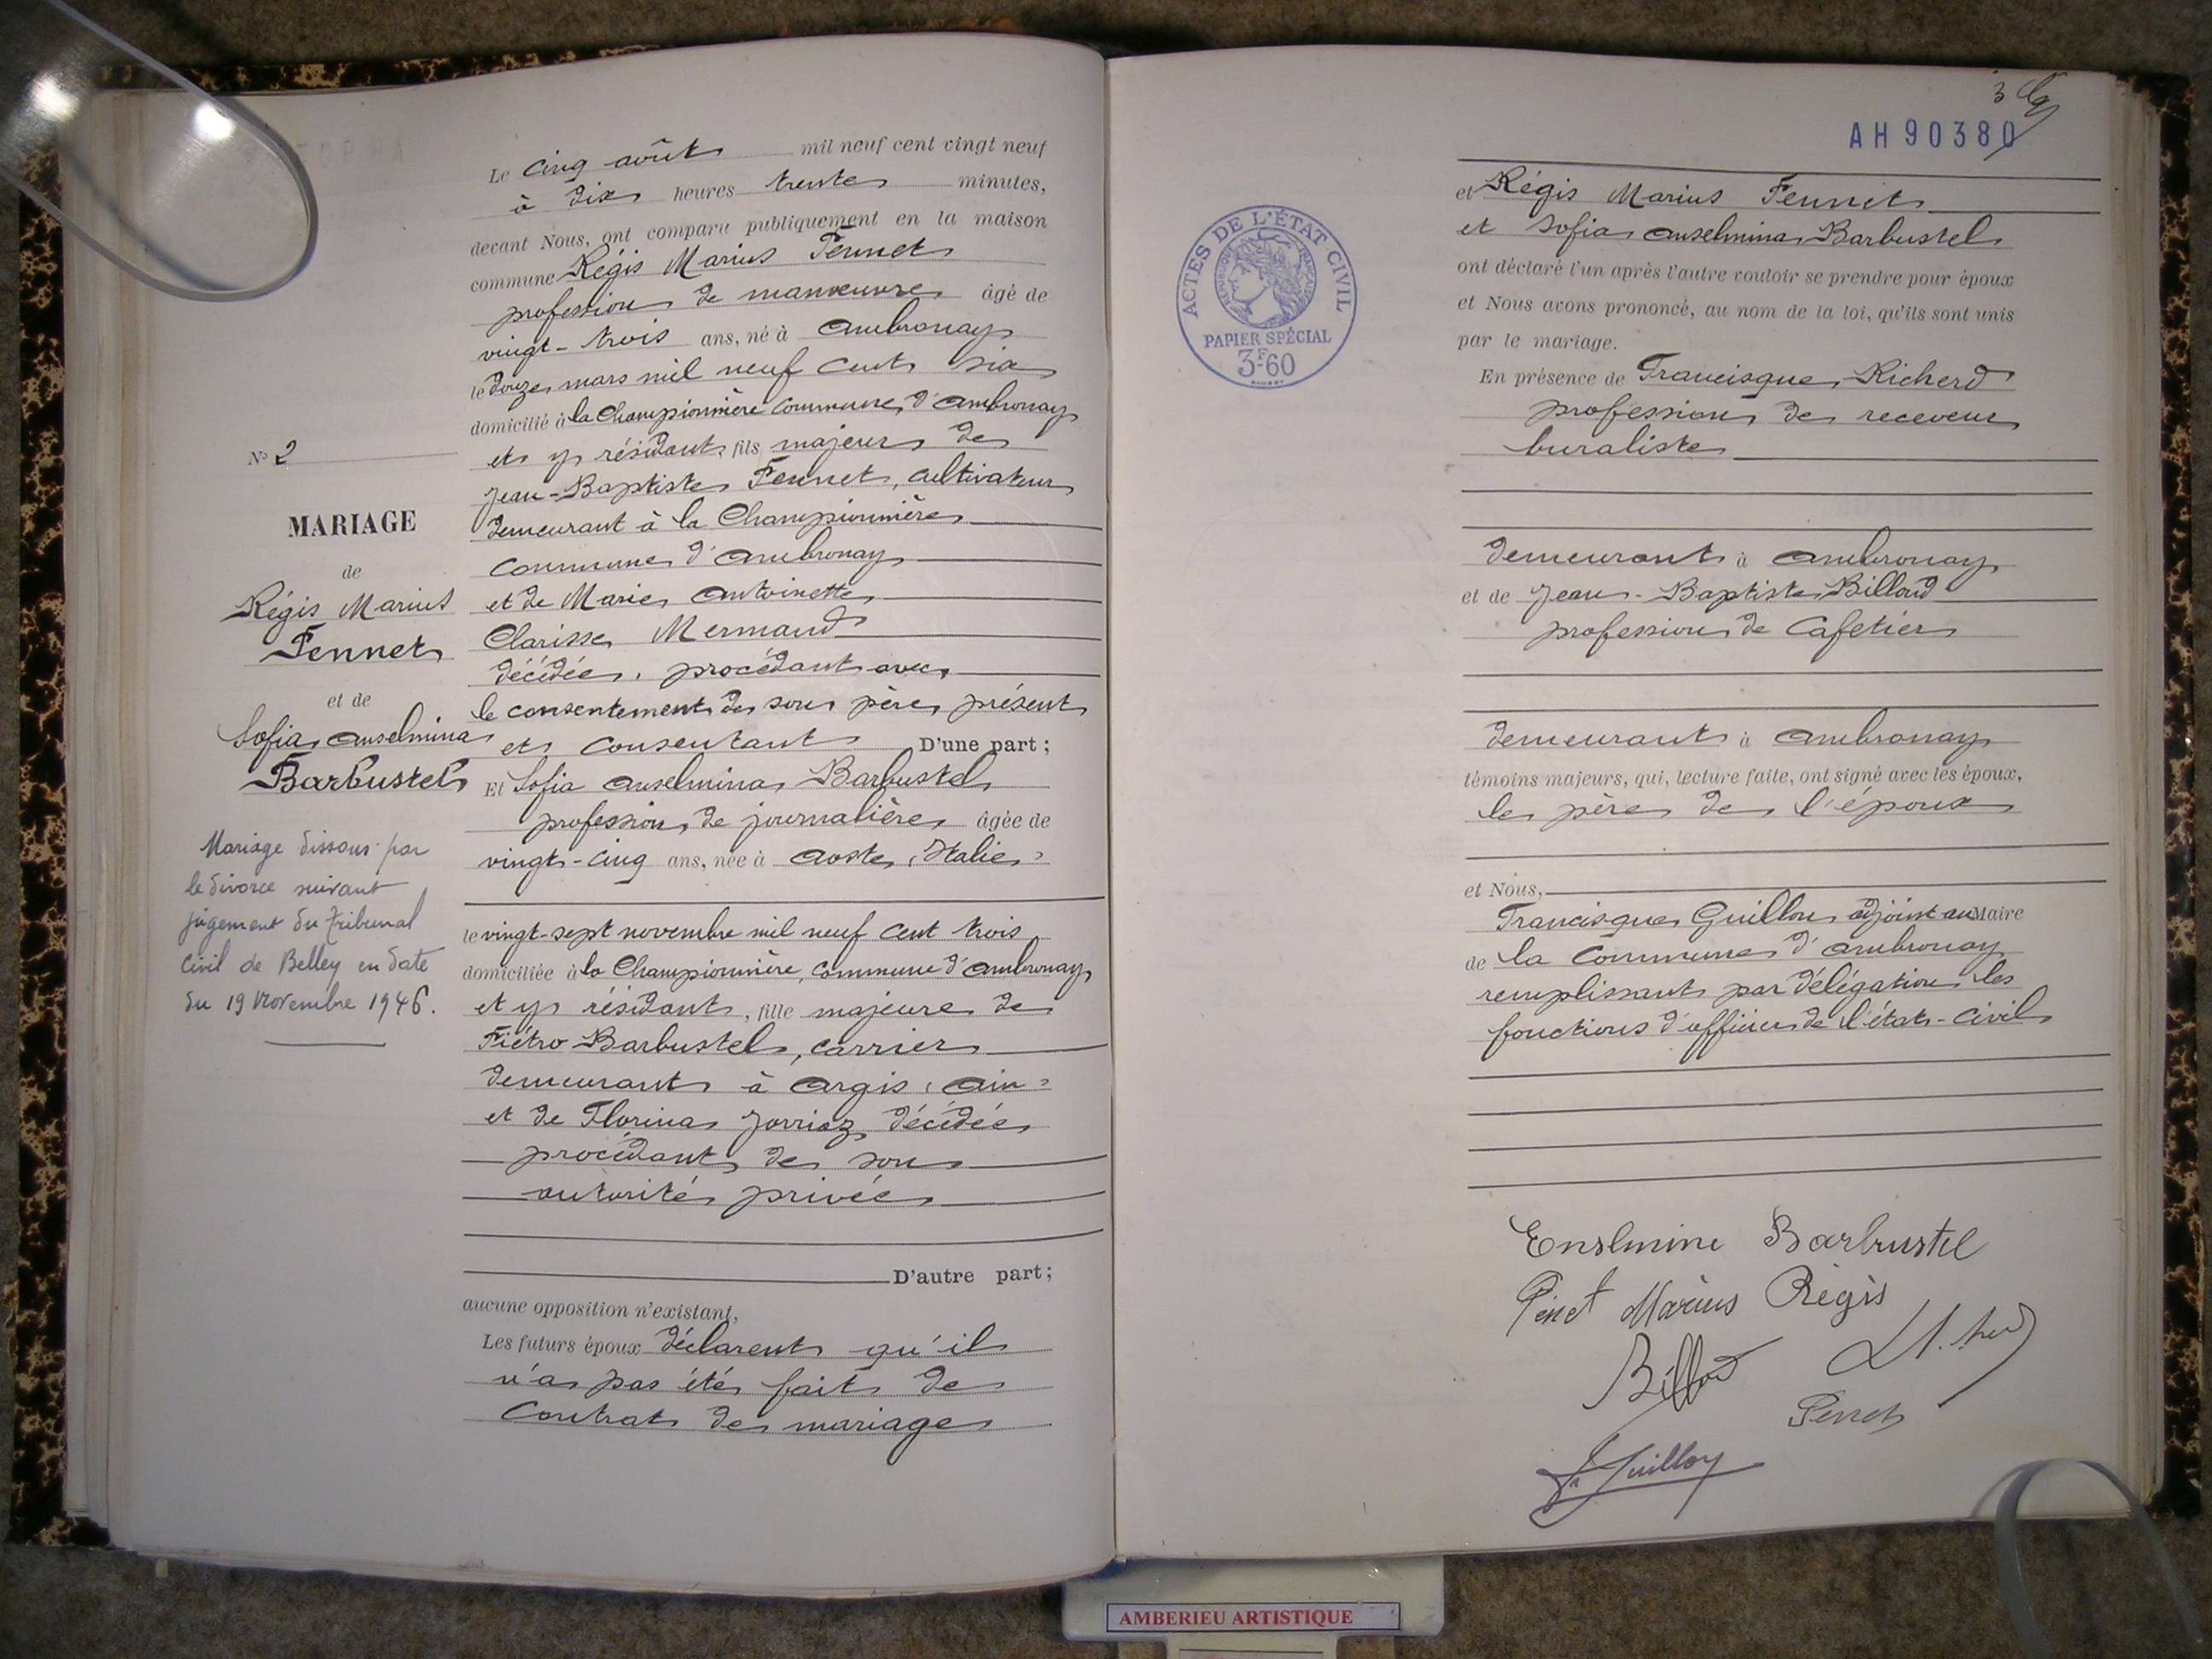 N° 2
MARIAGE
de
Régis Marius
Pennet
et de
Sofia Anselmina
Barbustel
Mariage dissous par
le divorce suivant
jugement du tribunal
Civil de Belley en date
du 19 Novembre 1946.
Le cinq août mil neuf cent vingt neuf
à dix heures trente minutes,
devant Nous, ont comparu publiquement en la maison
commune Régis Marius Pennet
profession de manœuvre âgé de
vingt-trois ans, né à Ambronay
le douze mars mil neuf cent six
domicilié à la Championnière commune d'Ambronay
et y résidant, fils majeur de
Jean-Baptiste Pennet, cultivateur
demeurant à la Championnière
commune d'Ambronay
et de Marie Antoinette
Clarisse Mermand
décédée, procédant avec
le consentement de son père présent
et consentant D'une part ;
Et Sofia Anselmina Barbustel
profession de journalière âgée de
vingt-cinq ans, née à Aoste (Italie)
le vingt-sept novembre mil neuf cent trois
domiciliée à la Championnière, commune d'Ambronay
et y résidant, fille majeure de
Piétro Barbustel, carrier
demeurant à Argis (Ain)
et de Florina Jorrioz décédée
procédant de son
autorité privée
D'autre part ;
aucune opposition n'existant,
Les futurs époux déclarent qu'il
n'a pas été fait de
contrat de mariage
3
AH 90380
ACTES DE L'ÉTAT CIVIL
RÉPUBLIQUE FRANÇAISE
PAPIER SPÉCIAL
3F60
et Régis Marius Pennet
et Sofia Anselmina Barbustel
ont déclaré l'un après l'autre vouloir se prendre pour époux
et Nous avons prononcé, au nom de la loi, qu'ils sont unis
par le mariage.
En présence de Francisque Richerd
profession de receveur
buraliste
demeurant à Ambronay
et de Jean-Baptiste Billoud
profession de cafetier
demeurant à Ambronay
témoins majeurs, qui, lecture faite, ont signé avec les époux,
le père de l'époux
et Nous,
Francisque Guillou adjoint au Maire
de la Commune d'Ambronay
remplissant par délégation les
fonctions d'officier de l'état-civil
Enslmine Barbustel
Penet Marius Régis
Billod
Penet
Guilloy
AMBERIEU ARTISTIQUE